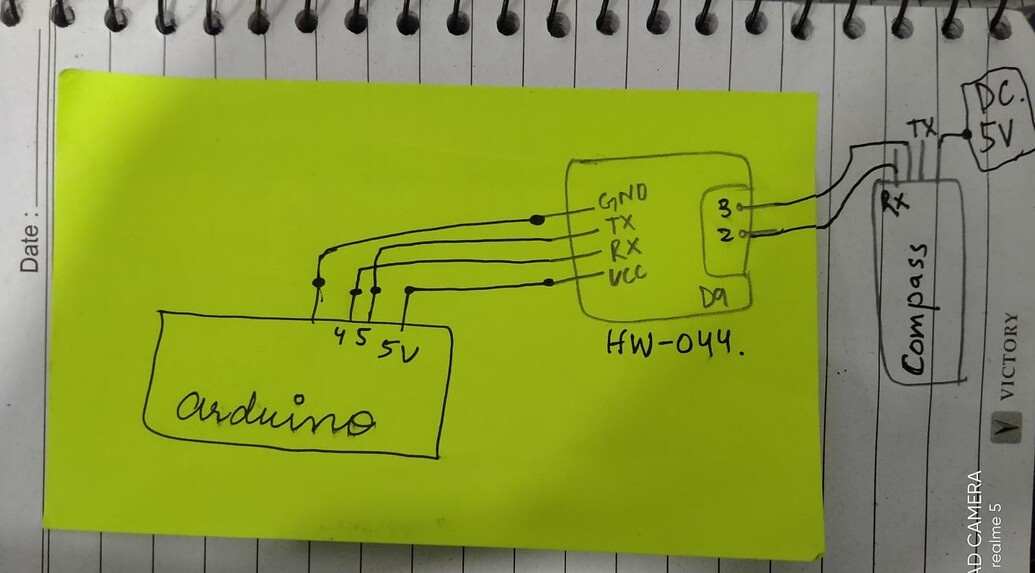 Date :
DC.
5V
TX
RX
Compass
GND
TX
RX
VCC
3
2
D9
HW-044.
4 5 5V
arduino
V VICTORY
AD CAMERA
realme 5